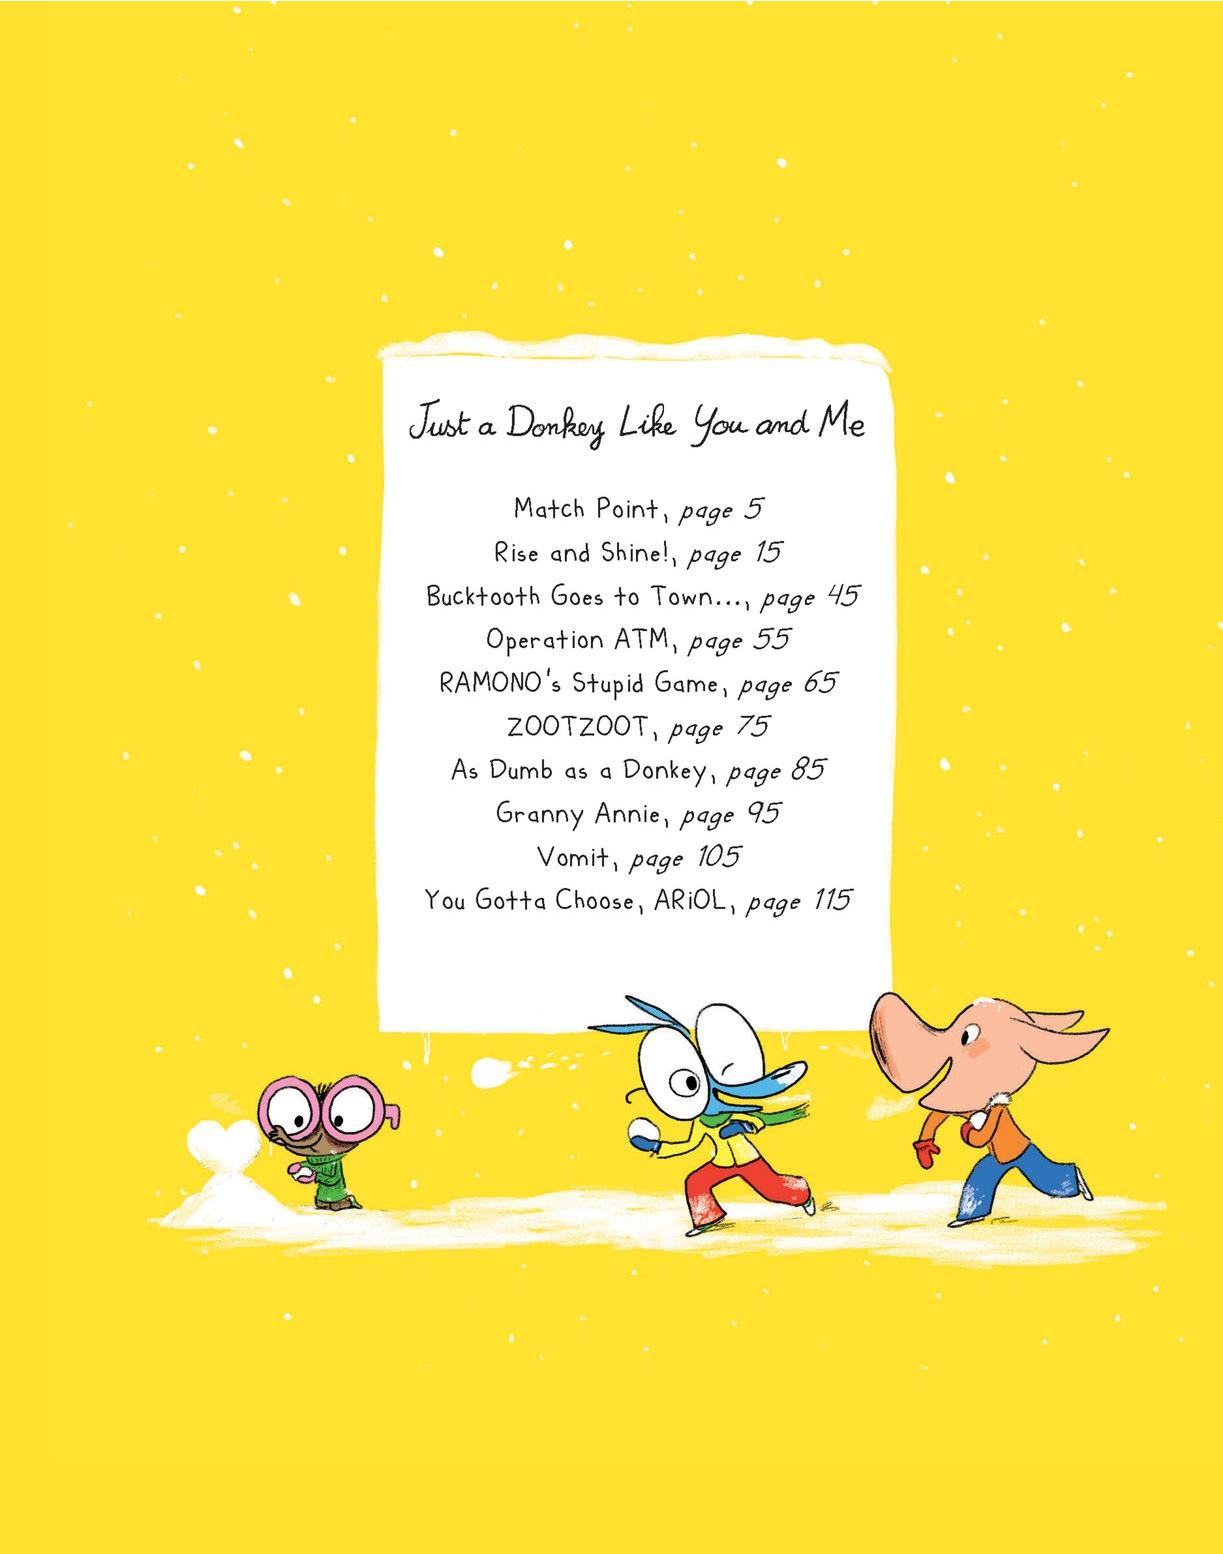 Just a Donkey Like You and Me
Match Point, page 5
Rise and Shine!, page 15
Bucktooth Goes to Town..., page 45
Operation ATM, page 55
RAMONO's Stupid Game, page 65
ZOOTZOOT, page 75
As Dumb as a Donkey, page 85
Granny Annie, page 95
Vomit, page 105
You Gotta Choose, ARiOL, page 115